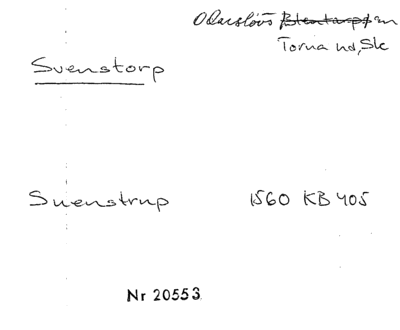 Odarslövs Stentorps sn
Torna hd, Sk
Svenstorp
Suenstrup 1560 KB 405
Nr 20553